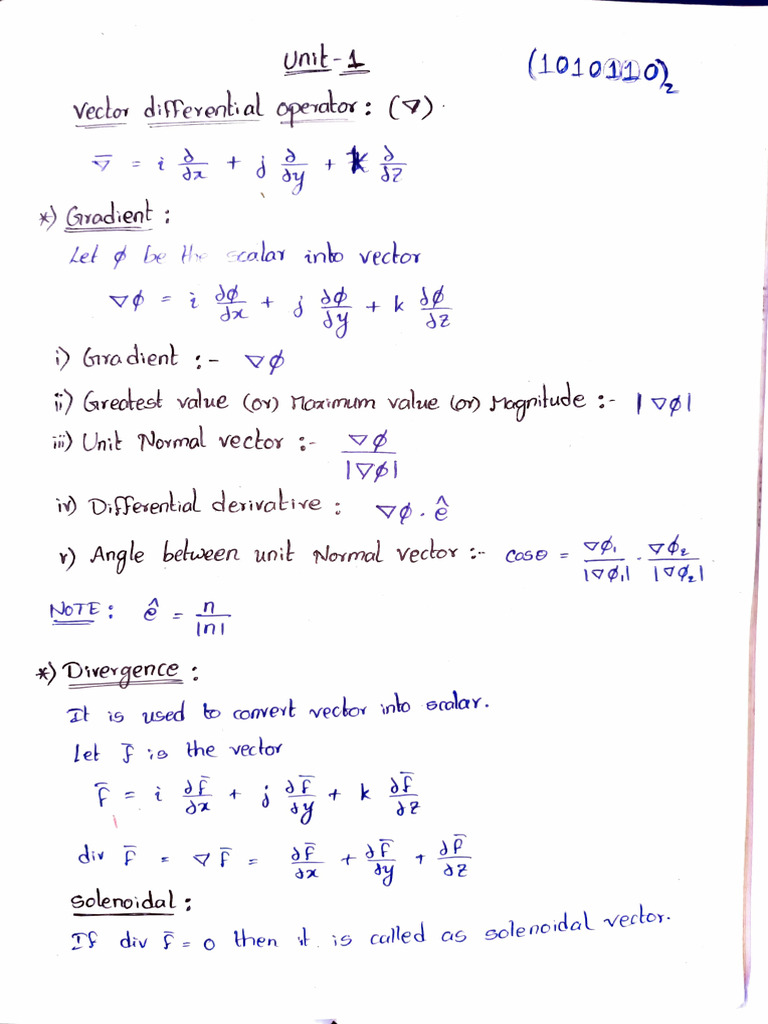 Unit-1
(1010110)₂
Vector differential operator : (∇).
∇̄ = i ∂/∂x + j ∂/∂y + k ∂/∂z
*) Gradient :
Let φ be the scalar into vector
∇φ = i ∂φ/∂x + j ∂φ/∂y + k ∂φ/∂z
i) Gradient :- ∇φ
ii) Greatest value (or) Maximum value (or) Magnitude :- |∇φ|
iii) Unit Normal vector :- ∇φ/|∇φ|
iv) Differential derivative : ∇φ · ê
v) Angle between unit Normal vector :- cosθ = ∇φ₁/|∇φ₁| · ∇φ₂/|∇φ₂|
NOTE : ê = n/|n|
*) Divergence :
It is used to convert vector into scalar.
Let f̄ is the vector
f̄ = i ∂f̄/∂x + j ∂f̄/∂y + k ∂f̄/∂z
div f̄ = ∇f̄ = ∂f̄/∂x + ∂f̄/∂y + ∂f̄/∂z
Solenoidal :
If div f̄ = 0 then it is called as solenoidal vector.